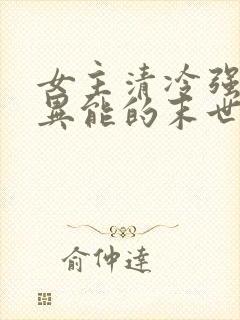 女主清冷强
异能的末世
俞仲達